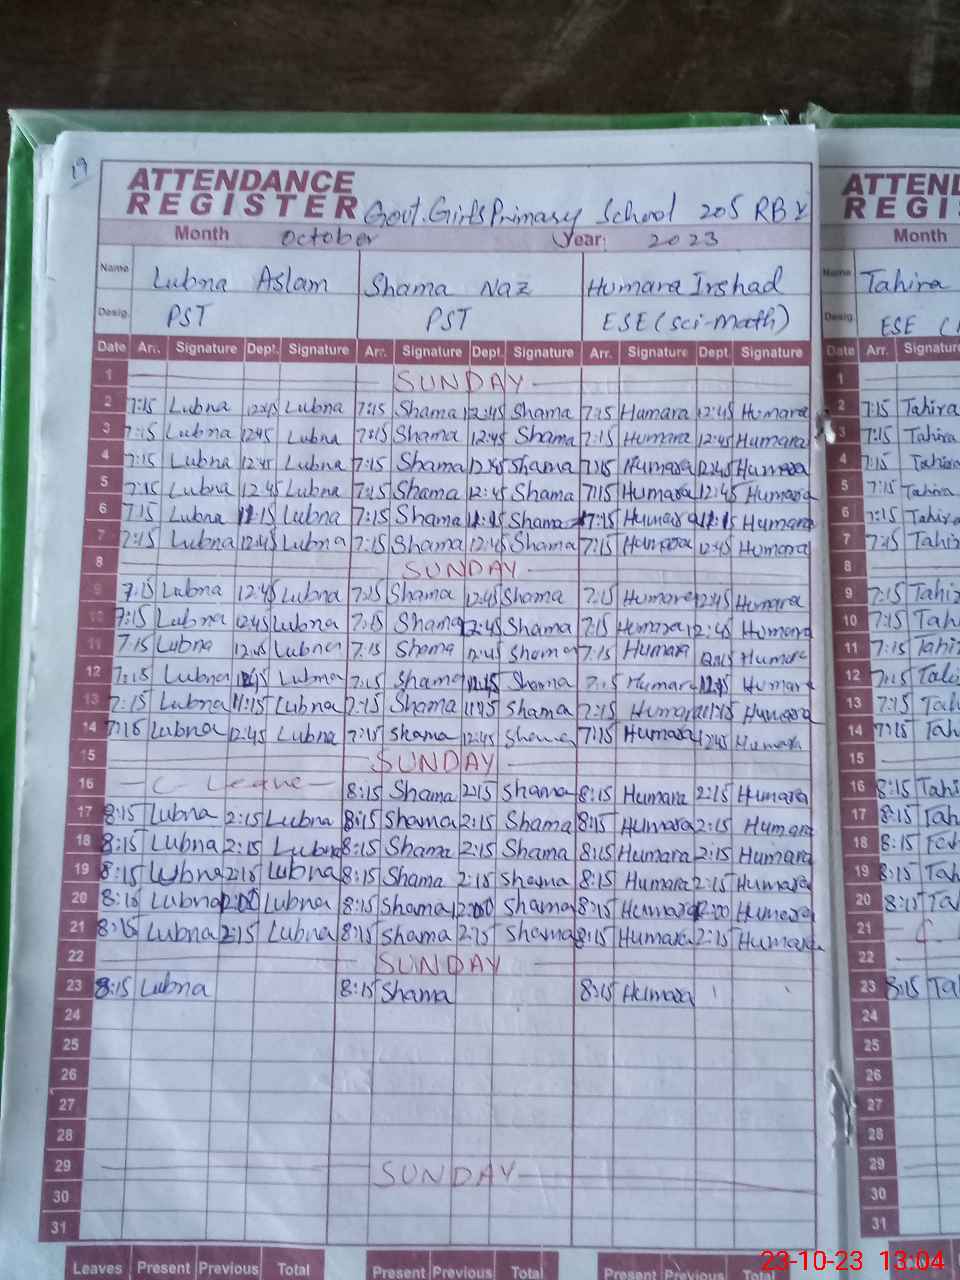 19
ATTENDANCE
REGISTER Govt. Girls Primary School 205 RB
Month October Year: 2023
Name Lubna Aslam Shama Naz Humara Irshad
Desig. PST PST ESE (sci-math)
Date Arr. Signature Dept. Signature Arr. Signature Dept. Signature Arr. Signature Dept. Signature
1 SUNDAY
2 7:15 Lubna 12:45 Lubna 7:15 Shama 12:45 Shama 7:15 Humara 12:45 Humara
3 7:15 Lubna 12:45 Lubna 7:15 Shama 12:45 Shama 7:15 Humara 12:45 Humara
4 7:15 Lubna 12:45 Lubna 7:15 Shama 12:45 Shama 7:15 Humara 12:45 Humara
5 7:15 Lubna 12:45 Lubna 7:15 Shama 12:45 Shama 7:15 Humara 12:45 Humara
6 7:15 Lubna 11:15 Lubna 7:15 Shama 11:15 Shama 7:15 Humara 11:15 Humara
7 7:15 Lubna 12:45 Lubna 7:15 Shama 12:45 Shama 7:15 Humara 12:45 Humara
8 SUNDAY
9 7:15 Lubna 12:45 Lubna 7:15 Shama 12:45 Shama 7:15 Humara 12:45 Humara
10 7:15 Lubna 12:45 Lubna 7:15 Shama 12:45 Shama 7:15 Humara 12:45 Humara
11 7:15 Lubna 12:45 Lubna 7:15 Shama 12:45 Shama 7:15 Humara 12:45 Humara
12 7:15 Lubna Lubna 7:15 Shama Shama 7:15 Humara Humara
13 7:15 Lubna 11:15 Lubna 7:15 Shama 11:15 Shama 7:15 Humara 11:15 Humara
14 7:15 Lubna 12:45 Lubna 7:15 Shama 12:45 Shama 7:15 Humara 12:45 Humara
15 SUNDAY
16 C Leave 8:15 Shama 2:15 Shama 8:15 Humara 2:15 Humara
17 8:15 Lubna 2:15 Lubna 8:15 Shama 2:15 Shama 8:15 Humara 2:15 Humara
18 8:15 Lubna 2:15 Lubna 8:15 Shama 2:15 Shama 8:15 Humara 2:15 Humara
19 8:15 Lubna 2:15 Lubna 8:15 Shama 2:15 Shama 8:15 Humara 2:15 Humara
20 8:15 Lubna 12:00 Lubna 8:15 Shama 12:00 Shama 8:15 Humara 12:00 Humara
21 8:15 Lubna 2:15 Lubna 8:15 Shama 2:15 Shama 8:15 Humara 2:15 Humara
22 SUNDAY
23 8:15 Lubna 8:15 Shama 8:15 Humara
24
25
26
27
28
29 SUNDAY
30
31
Leaves Present Previous Total Present Previous Total Present Previous Total
ATTEND
REGIS
Month
Name Tahira
Desig. ESE (
Date Arr. Signatur
1
2 7:15 Tahira
3 7:15 Tahira
4 7:15 Tahira
5 7:15 Tahira
6 7:15 Tahira
7 7:15 Tahir
8
9 7:15 Tahir
10 7:15 Tah
11 7:15 Tahi
12 7:15
13 7:15 Tah
14 7:15 Tah
15
16 8:15 Tahi
17 8:15 Tah
18 8:15
19 8:15 Tah
20 8:15 Ta
21 C
22
23 8:15 Ta
24
25
26
27
28
29
30
31
23-10-23 13:04